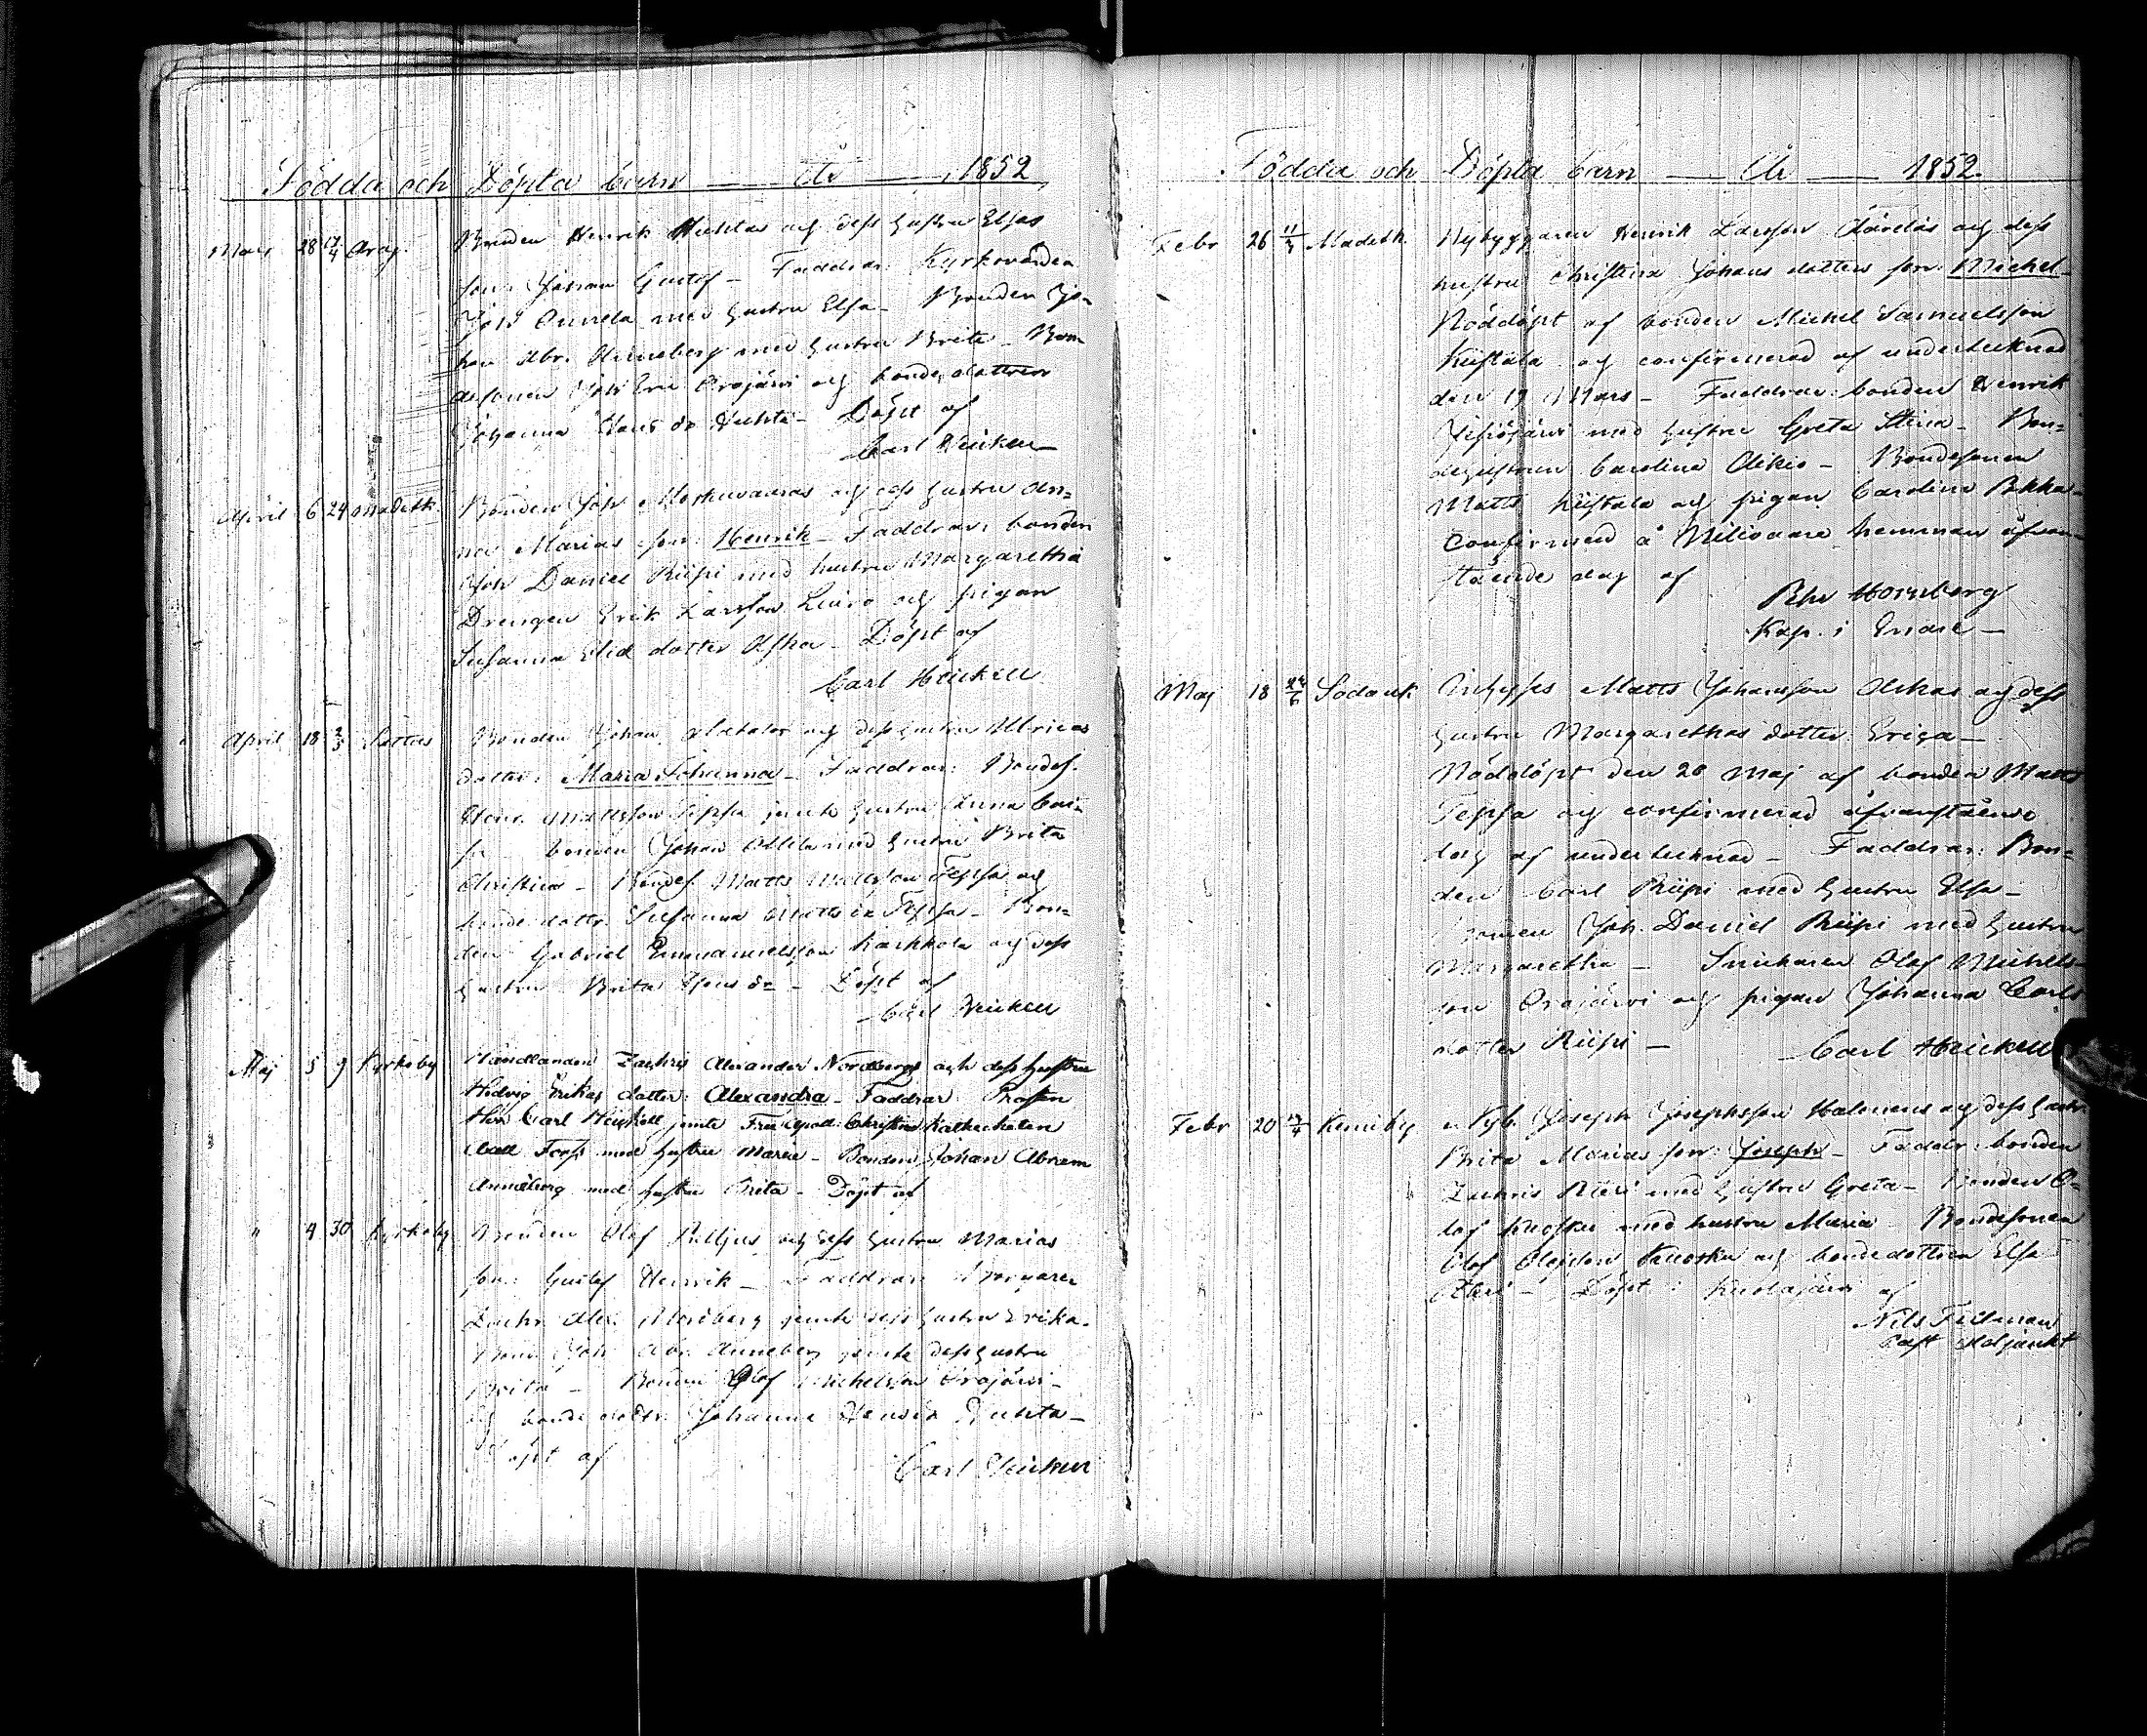 Födda och Döpta barn — År — 1852
Mars 28 17/4 Oraj. Bonden Henrik Huhtas och dess hustru Elsas
son: Johan Gustaf — Faddrar: Kyrkovärden
Joh. med hustru Elsa — Bonden Jo-
han Abr. Anneberg med hustru Brita — Bon
desonen Joh. Eric Orajärvi och bondedottren
Johanna Huhta — Döpt af
Carl Heickell
April 6 24 Madetk. Bonden Joh. Moskuvaaras och dess hustru An-
na Marias son: Henrik — Faddrar: bonden
Joh. Daniel Riipi med hustru Margaretha
Drengen Erik Larsson Luiro och pigan
Susanna dotter — Döpt af
Carl Heickell
April 18 2/5 Sattas Bonden Johan och dess hustru Ulricas
dotter: Maria Johanna — Faddrar: Bondes.
Henr. Mattsson Teppsa jemte hustru Anna Cai-
sa bonden Johan med hustru Brita
Christina — Bondes. Matts Mattsson Teppsa och
bondedottr. Susanna Matts dr Teppsa — Bon-
den Gabriel Emmanuelsson Karhkola och dess
hustru Brita dr — Döpt af
Carl Heickell
Maj 5 9 Kyrkoby Handlanden Zachris Alexander Nordbergs och dess hustru
Hedvig Erikas dotter: Alexandra — Faddrar: Prosten
Herr Carl Heickell jemte Christina Katheketen
Forss med hustru Maria — Bonden Johan Abram
Anneberg med hustru Brita — Döpt af
" 4 30 Kyrkoby Bonden Olof och dess hustru Marias
son: Gustaf Henrik — Faddrar: Borgaren
Zachr. Alex. Nordberg jemte dess hustru Erika.
Bond. Joh. Abr. Anneberg jemte dess hustru
Brita — Bonden Olof Michelsson Orajärvi —
och bondedottr. Johanna Huhta —
Döpt af
Carl Heickell
Födda och Döpta barn — År — 1852.
Febr 26 Madetk. Nybyggaren Henrik Larsson och dess
hustru Christina Johans dotters son: Michel —
Nöddöpt af bonden Michel Samuelsson
Kiistala och confirmerad af undertecknad
den 17 Mars — Faddrar: bonden Henrik
Jeesiöjärvi med hustru Greta Stina — Bon-
dehustrun Carolina Alikio — Bondesonen
Matts Kiistala och pigan Carolina
Confirmerad å hemman ofvan-
stående dag af
Pehr Hornborg
Kap. i Enare —
Maj 18 Sodank Inhyses Matts Johansson och dess
hustru Margarethas dotter: Erica —
Nöddöpt den 20 Maj af bonden Matts
Teppsa och confirmerad ofvanstående
dag af undertecknad — Faddrar: Bon-
den Carl Riipi med hustru Elsa —
Bonden Joh. Daniel Riipi med hustru
Margaretha — Snickaren Olof Michels-
son Orajärvi och pigan Johanna Carls
dotter Riipi —
Carl Heickell
Febr 20 Kemiby Nyb. Joseph Josephsson Halonens och dess hustr.
Brita Marias son: Joseph — Faddr: bonden
Zachris med hustru Greta — Bonden O-
lof Kuosku med hustru Maria — Bondesonen
Olof Olofsson Kuosku och bondedottren Elsa
— Döpt i Kuolajärvi af
Nils Fellman
Past. Adjunkt